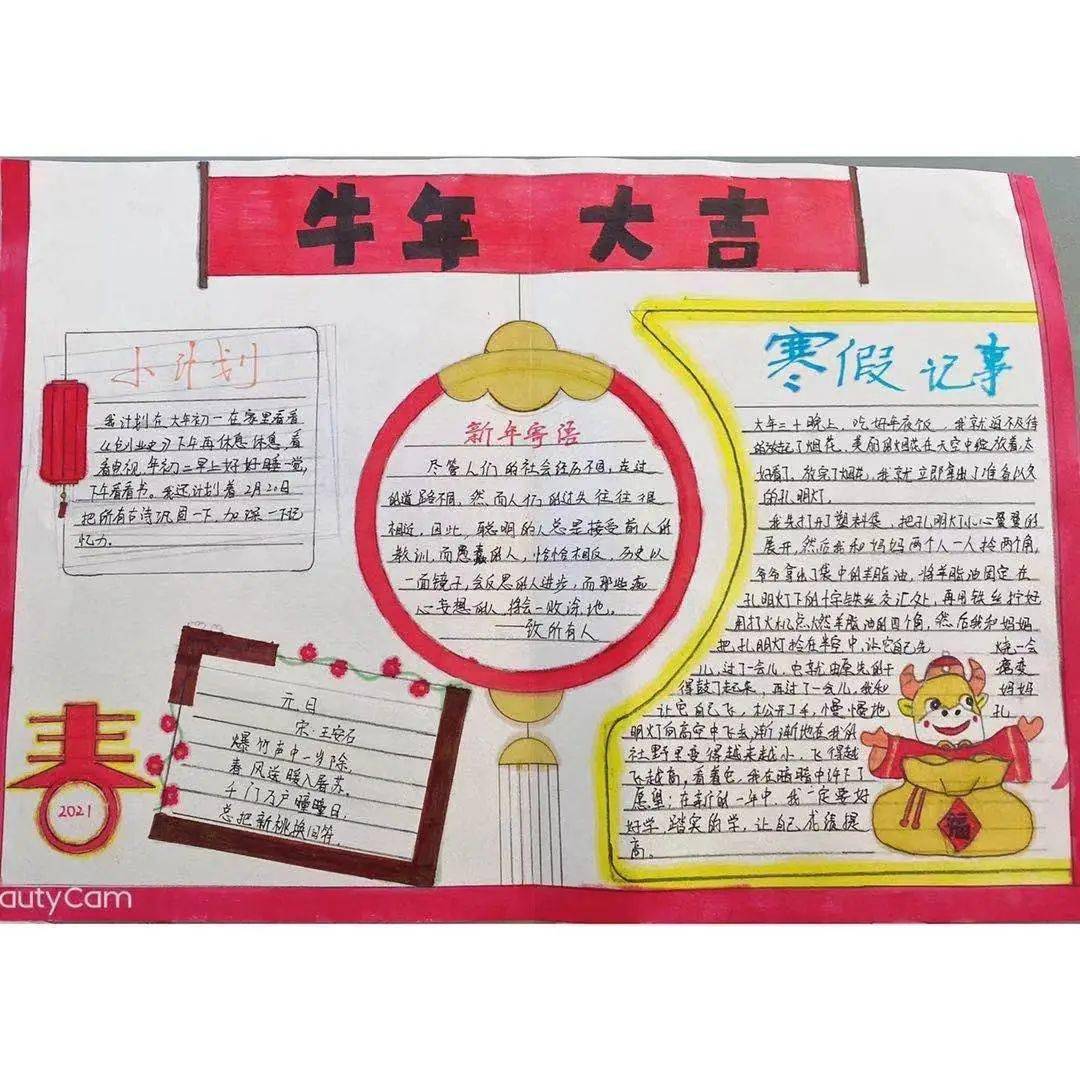 牛年 大吉
小计划
我计划在大年初一在家里看看
《创业史》下午再休息休息,看
看电视,年初二早上好好睡一觉,
下午看看书。我还计划着2月20日
把所有古诗巩固一下,加深一下记
忆力。
新年寄语
尽管人们的社会经历不同,走过
的道路不同,然而人们的过失往往很
相近,因此,聪明的人总是接受前人的
教训,而愚蠢的人,恰恰相反,历史以
一面镜子,会反思的人进步,而那些痴
心妄想的人将会一败涂地。
——致所有人
寒假记事
大年三十晚上,吃好年夜饭,我就迫不及待
的放起了烟花,美丽的烟花在天空中绽放着,太
好看了,放完了烟花,我就立即拿出了准备以久
的孔明灯。
我先打开了塑料袋,把孔明灯小心翼翼的
展开,然后我和妈妈两个人一人拎两角,
爷爷拿出了袋中的羊脂油,将羊脂油固定在
孔明灯下的十字铁丝交汇处,再用铁丝拧好
用打火机点燃羊脂油的四个角,然后我和妈妈
把孔明灯拎在半空中,让它自己先 烧一会
儿,过了一会儿,它就由原先的干 瘪变
得鼓了起来,再过了一会儿,我和 妈妈
让它自己飞,松开了手,慢慢地 孔
明灯向高空中飞去,渐渐地在我的
视野里变得越来越小,飞得越
飞越高,看着它,我在暗暗中许下了
愿望:在新的一年中,我一定要好
好学,踏实的学,让自己成绩提
高。
元日
宋·王安石
爆竹声中一岁除,
春风送暖入屠苏。
千门万户曈曈日,
总把新桃换旧符。
春
2021
福
autyCam